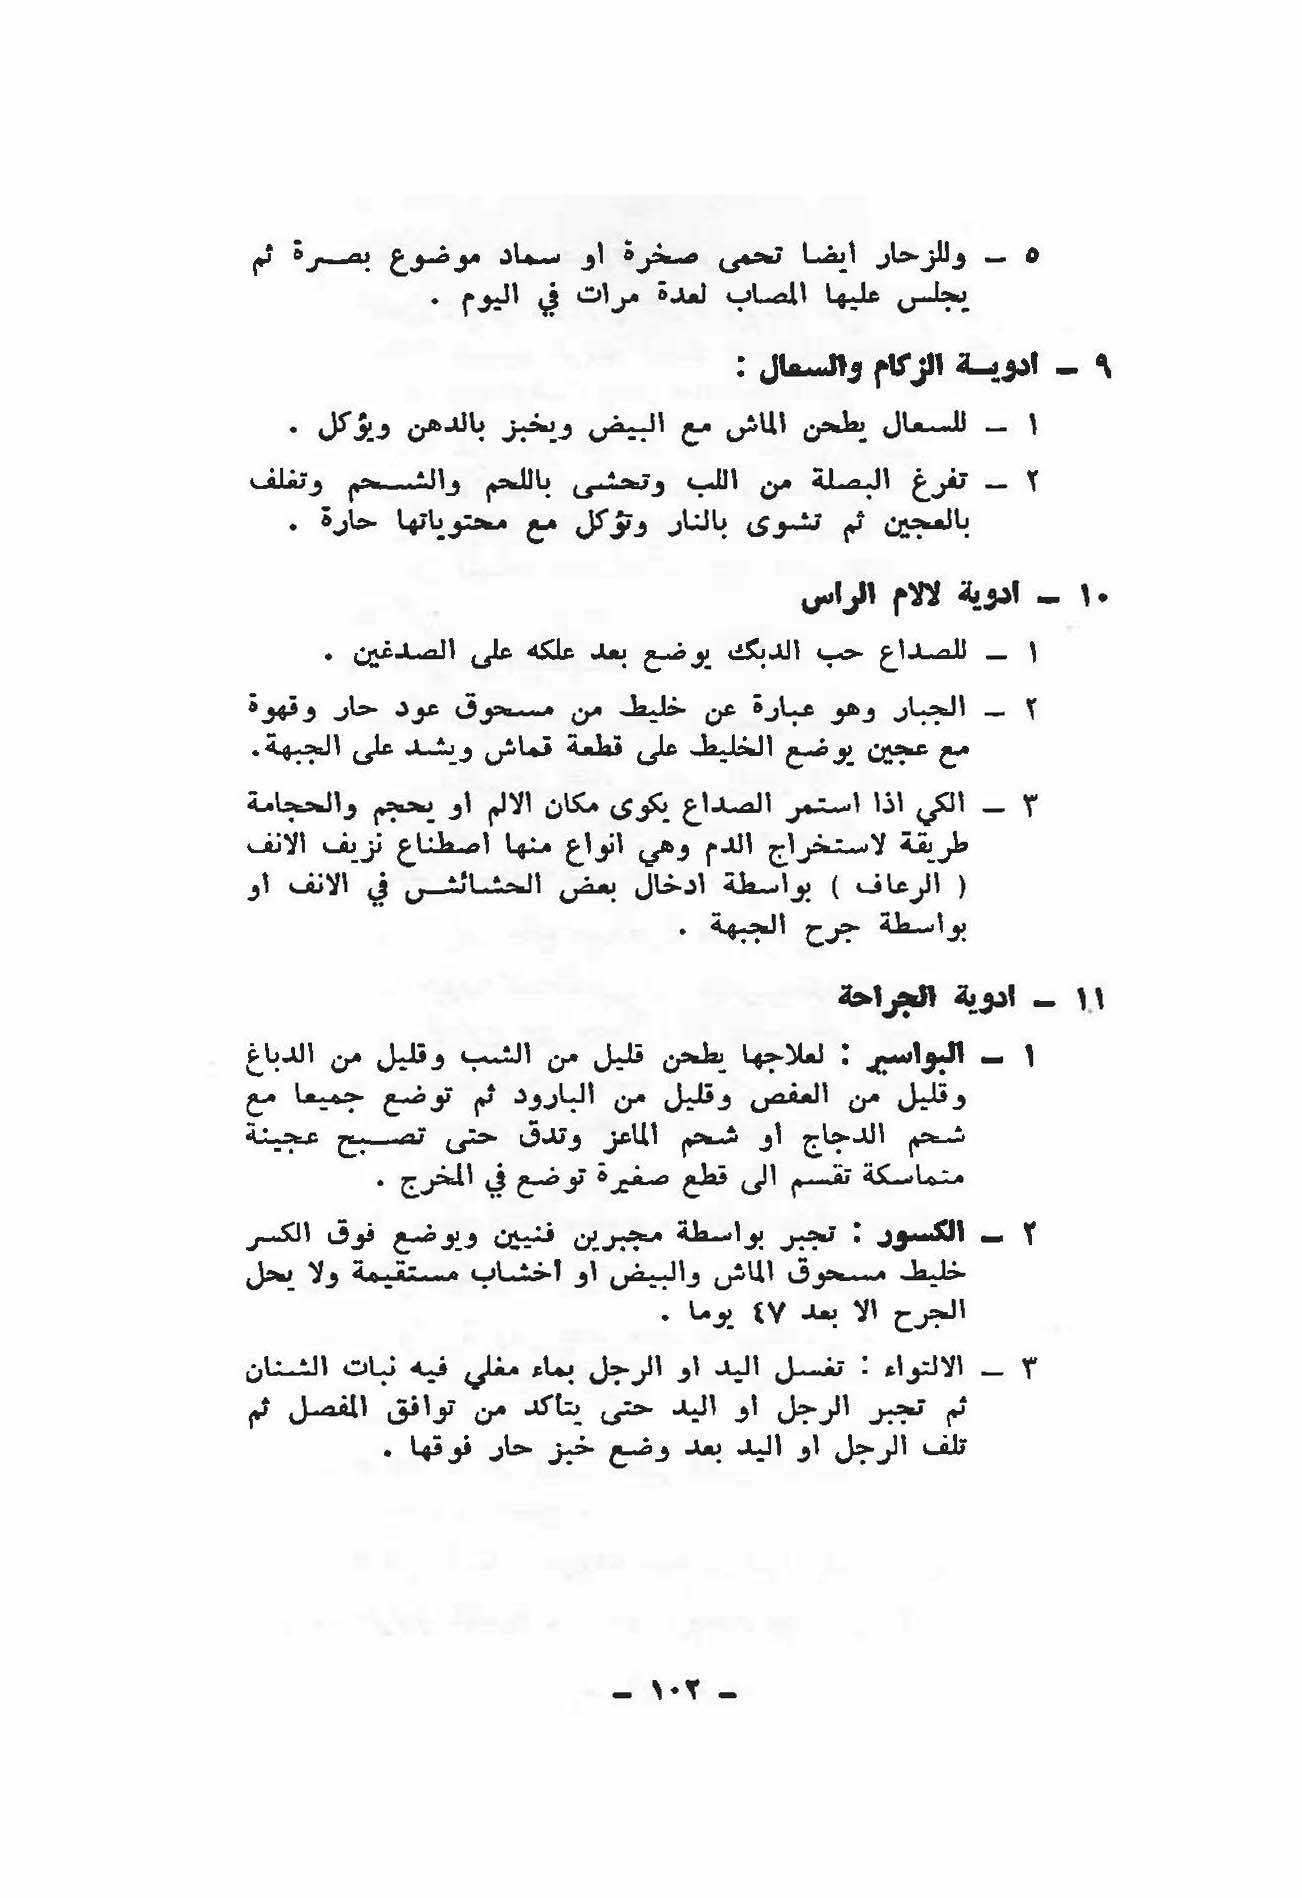 ٥ – وللزحار ايضا تحمى صخرة او سماد موضوع بصرة ثم
يجلس عليها المصاب لعدة مرات في اليوم .
٩ – ادوية الزكام والسعال :
١ – للسعال يطحن الماش مع البيض ويخبز بالدهن ويؤكل .
٢ – تفرغ البصلة من اللب وتحشى باللحم والشحم وتغلف
بالعجين ثم تشوى بالنار وتؤكل مع محتوياتها حارة .
١٠ – ادوية لالام الراس
١ – للصداع حب الدبك يوضع بعد علكه على الصدغين .
٢ – الجبار وهو عبارة عن خليط من مسحوق عود حار وقهوة
مع عجين يوضع الخليط على قطعة قماش ويشد على الجبهة.
٣ – الكي اذا استمر الصداع يكوى مكان الالم او يحجم والحجامة
طريقة لاستخراج الدم وهي انواع منها اصطناع نزيف الانف
( الرعاف ) بواسطة ادخال بعض الحشائش في الانف او
بواسطة جرح الجبهة .
١١ – ادوية الجراحة
١ – البواسير : لعلاجها يطحن قليل من الشب وقليل من الدباغ
وقليل من العفص وقليل من البارود ثم توضع جميعا مع
شحم الدجاج أو شحم الماعز وتدق حتى تصبح عجينة
متماسكة تقسم الى قطع صغيرة توضع في المخرج .
٢ – الكسور : تجبر بواسطة مجبرين فنيين ويوضع فوق الكسر
خليط مسحوق الماش والبيض او أخشاب مستقيمة ولا يحل
الجرح الا بعد ٤٧ يوما .
٣ – الالتواء : تغسل اليد او الرجل بماء مغلي فيه نبات الشنان
ثم تجبر الرجل او اليد حتى يتأكد من توافق المفصل ثم
تلف الرجل او اليد بعد وضع خبز حار فوقها .
– ١٠٢ –